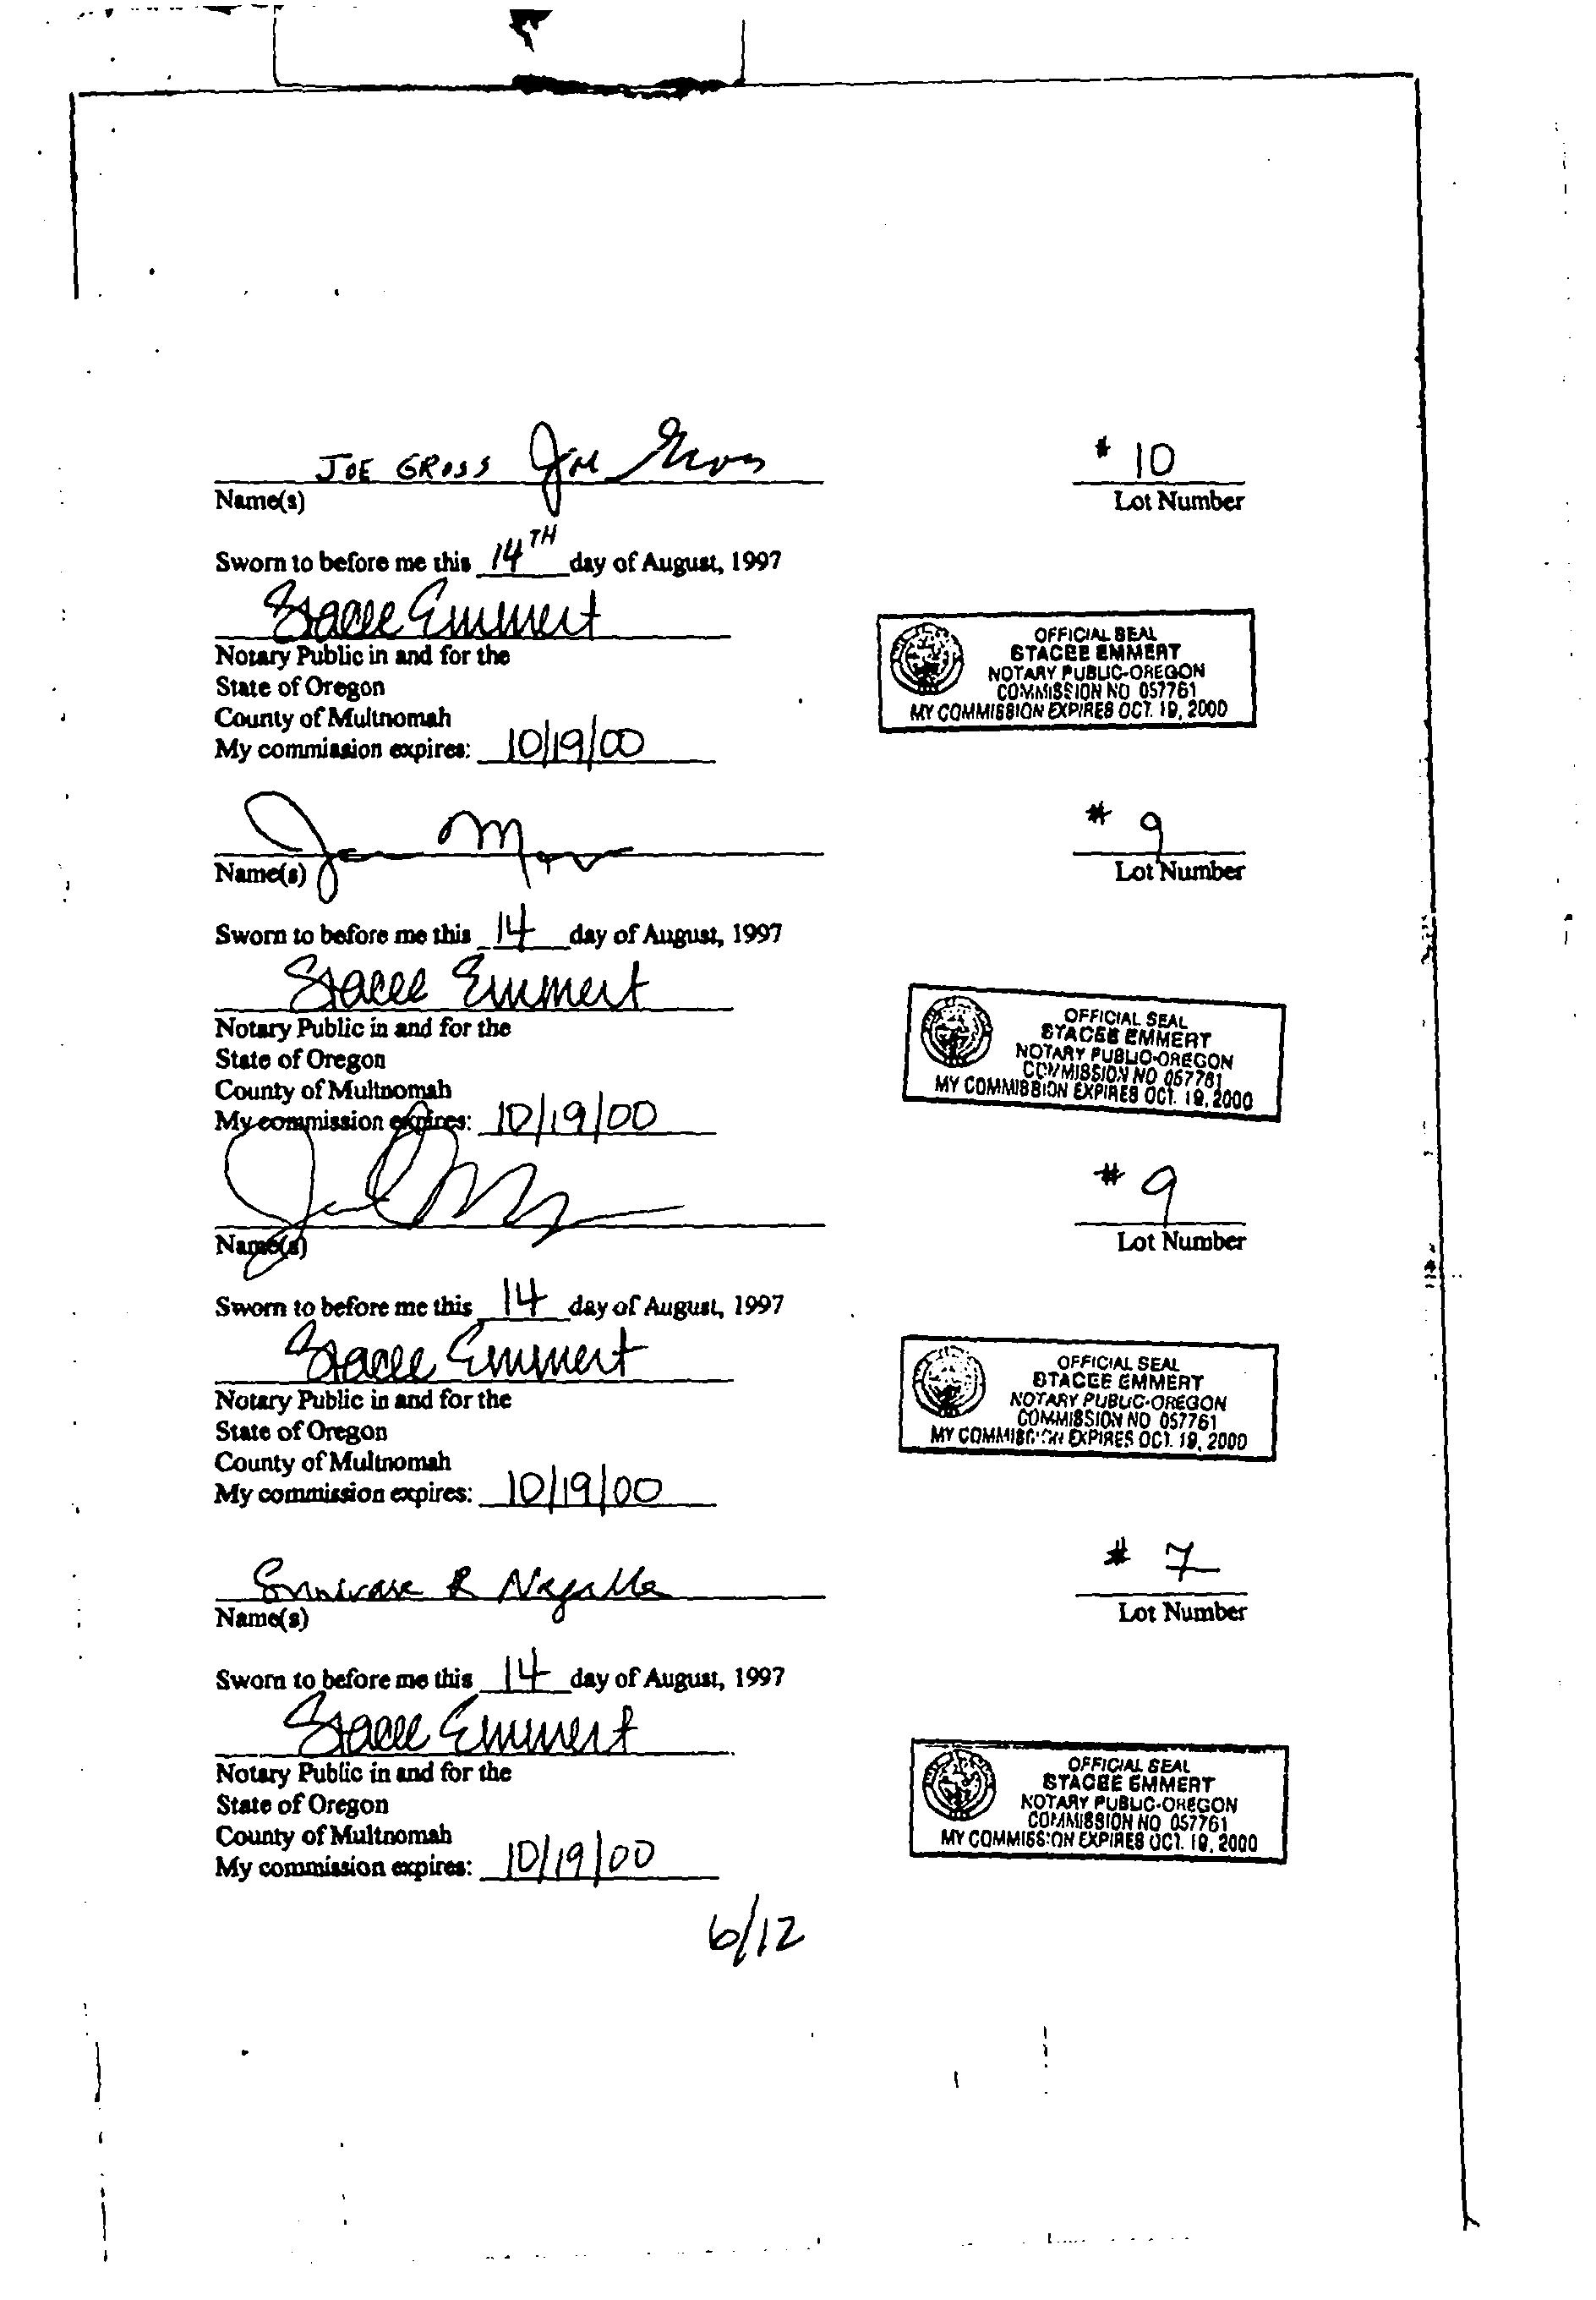 JOE GROSS Joe Gross # 10
Name(s) Lot Number
Sworn to before me this 14TH day of August, 1997
Stacee Emmert
Notary Public in and for the
State of Oregon
County of Multnomah
My commission expires: 10/19/00
OFFICIAL SEAL
STACEE EMMERT
NOTARY PUBLIC-OREGON
COMMISSION NO 057761
MY COMMISSION EXPIRES OCT. 19, 2000
# 9
Name(s) Lot Number
Sworn to before me this 14 day of August, 1997
Stacee Emmert
Notary Public in and for the
State of Oregon
County of Multnomah
My commission expires: 10/19/00
OFFICIAL SEAL
STACEE EMMERT
NOTARY PUBLIC-OREGON
COMMISSION NO 057761
MY COMMISSION EXPIRES OCT. 19, 2000
# 9
Name(s) Lot Number
Sworn to before me this 14 day of August, 1997
Stacee Emmert
Notary Public in and for the
State of Oregon
County of Multnomah
My commission expires: 10/19/00
OFFICIAL SEAL
STACEE EMMERT
NOTARY PUBLIC-OREGON
COMMISSION NO 057761
MY COMMISSION EXPIRES OCT. 19, 2000
R # 7
Name(s) Lot Number
Sworn to before me this 14 day of August, 1997
Stacee Emmert
Notary Public in and for the
State of Oregon
County of Multnomah
My commission expires: 10/19/00
OFFICIAL SEAL
STACEE EMMERT
NOTARY PUBLIC-OREGON
COMMISSION NO 057761
MY COMMISSION EXPIRES OCT. 19, 2000
6/12